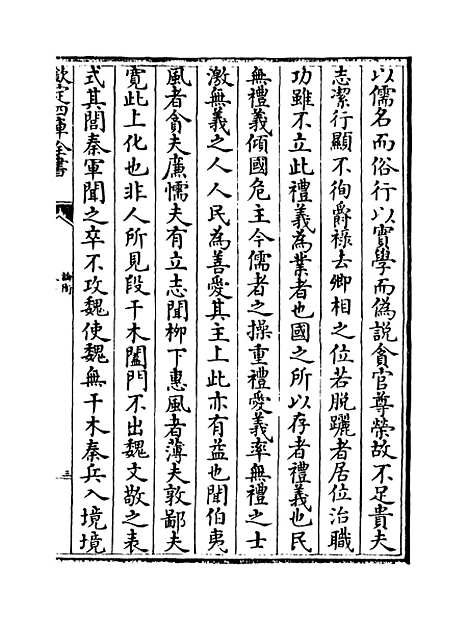 以儒名而俗行以實學而偽說貪官尊榮故不足貴夫
志潔行顯不徇爵祿去卿相之位若脱躧者居位治職
功雖不立此禮義為業者也國之所以存者禮義也民
無禮義傾國危主今儒者之操重禮愛義率無禮之士
激無義之人人民為善愛其主上此亦有益也聞伯夷
風者貪夫廉懦夫有立志聞柳下惠風者薄夫敦鄙夫
寛此上化也非人所見段干木闔門不出魏文敬之表
式其閭秦軍聞之卒不攻魏使魏無干木秦兵入境境
欽定四庫全書
論衡
三